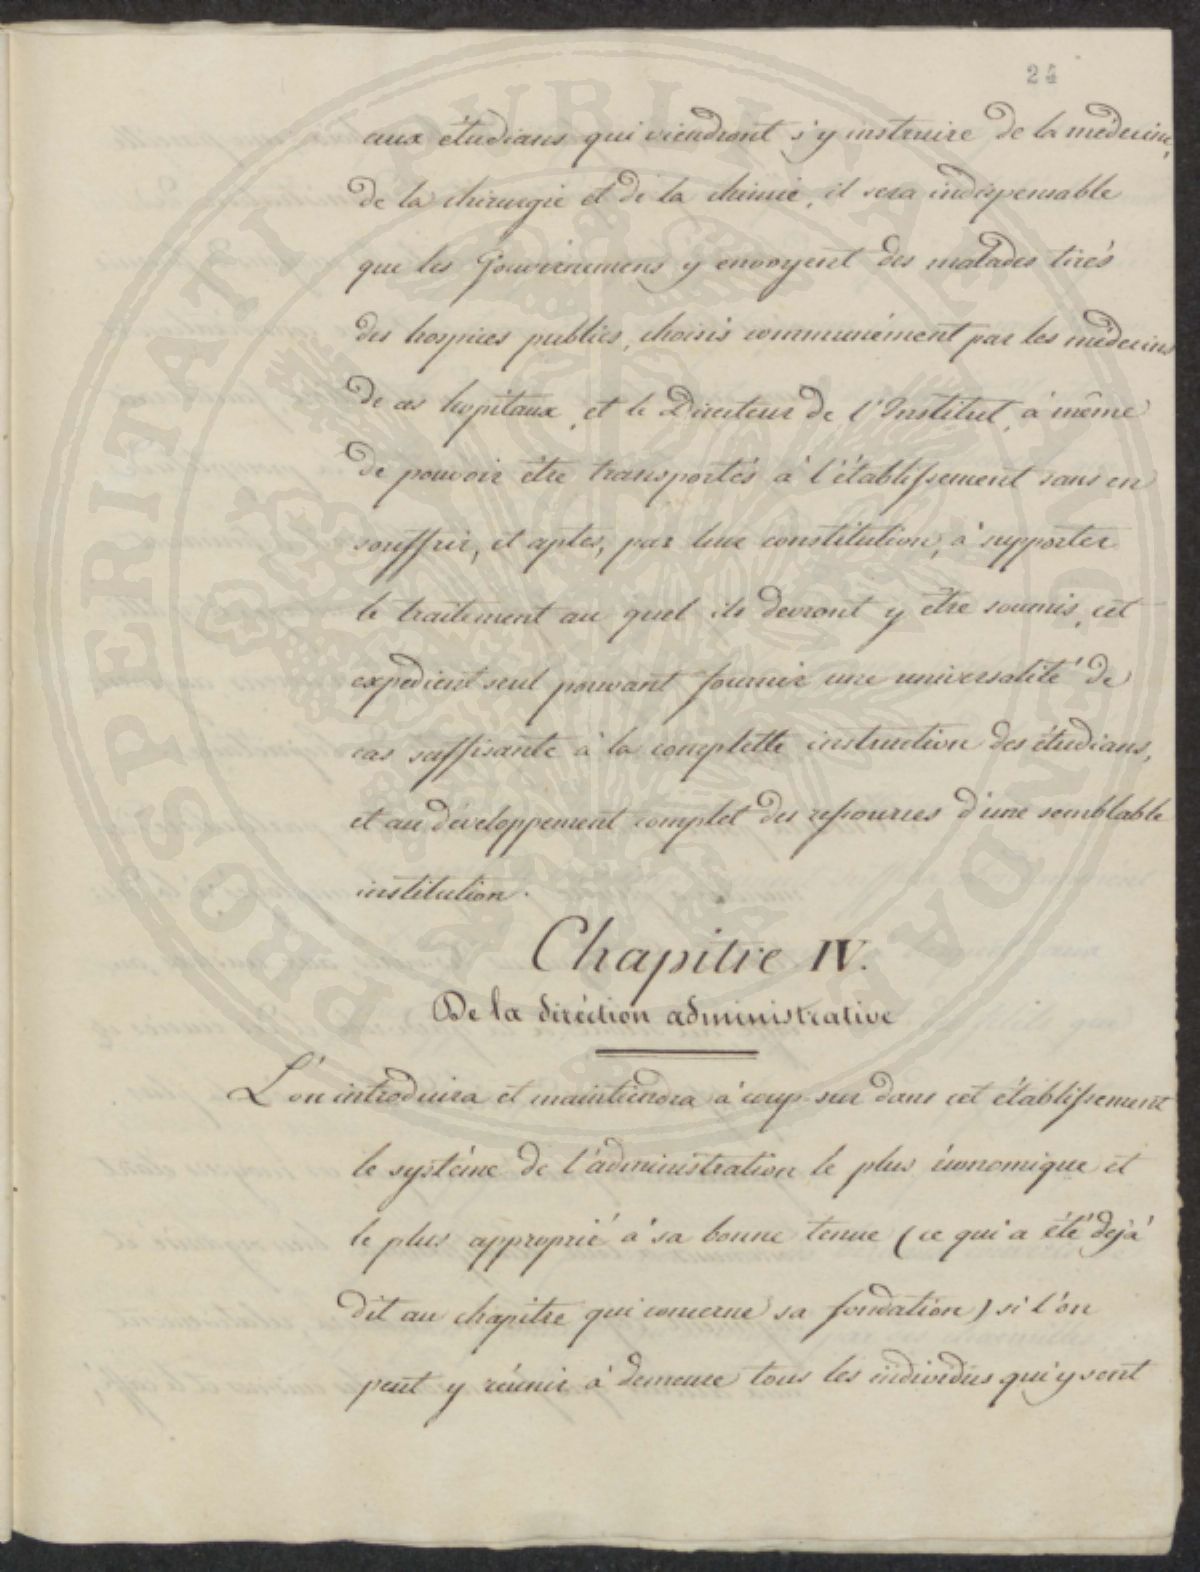 24
aux étudians qui viendront s'y instruire de la médecine,
de la chirurgie et de la chimie, il sera indispensable
que les Gouvernemens y envoyent des malades tirés
des hospices publics, choisis communément par les médecins
de ces hopitaux, et le Directeur de l'Institut, à même
de pouvoir être transportés à l'établissement sans en
souffrir, et aptes, par leur constitution, à supporter
le traitement au quel ils devront y être soumis, cet
expédient seul pouvant fournir une universalité de
cas saffisante à la complette instruction des étudians,
et au développement complet des ressources d'une semblable
institution.
Chapitre IV.
De la diréction administrative
L'on introduira et maintiendra à coup-sur dans cet établissement
le systéme de l'administration le plus économique et
le plus approprié à sa bonne tenue (ce qui a été déjà
dit au chapitre qui concerne sa fondation) si l'on
peut y réunir à demeure tous les individus qui y sont
PROSPERITATI PUBLICAE AUGENDAE